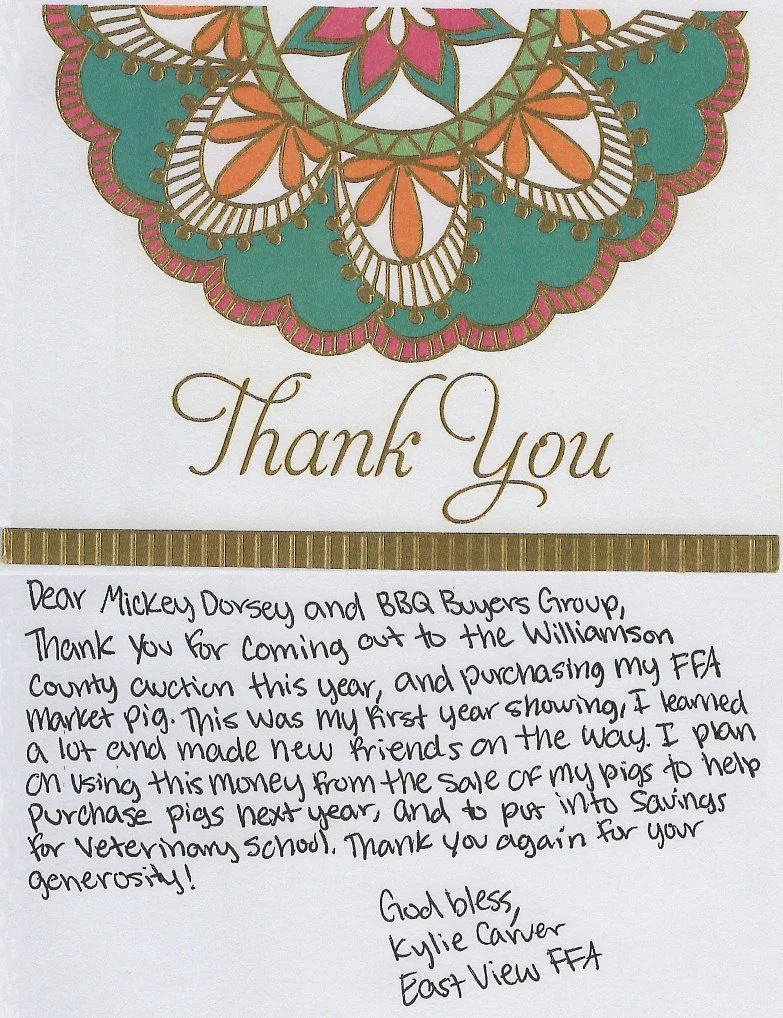 Thank You
Dear Mickey Dorsey and BBQ Buyers Group,
Thank you for coming out to the Williamson
County auction this year, and purchasing my FFA
market pig. This was my first year showing, I learned
a lot and made new friends on the way. I plan
on using this money from the sale of my pigs to help
purchase pigs next year, and to put into savings
for veterinary school. Thank you again for your
generosity!
God bless,
Kylie Carver
East View FFA